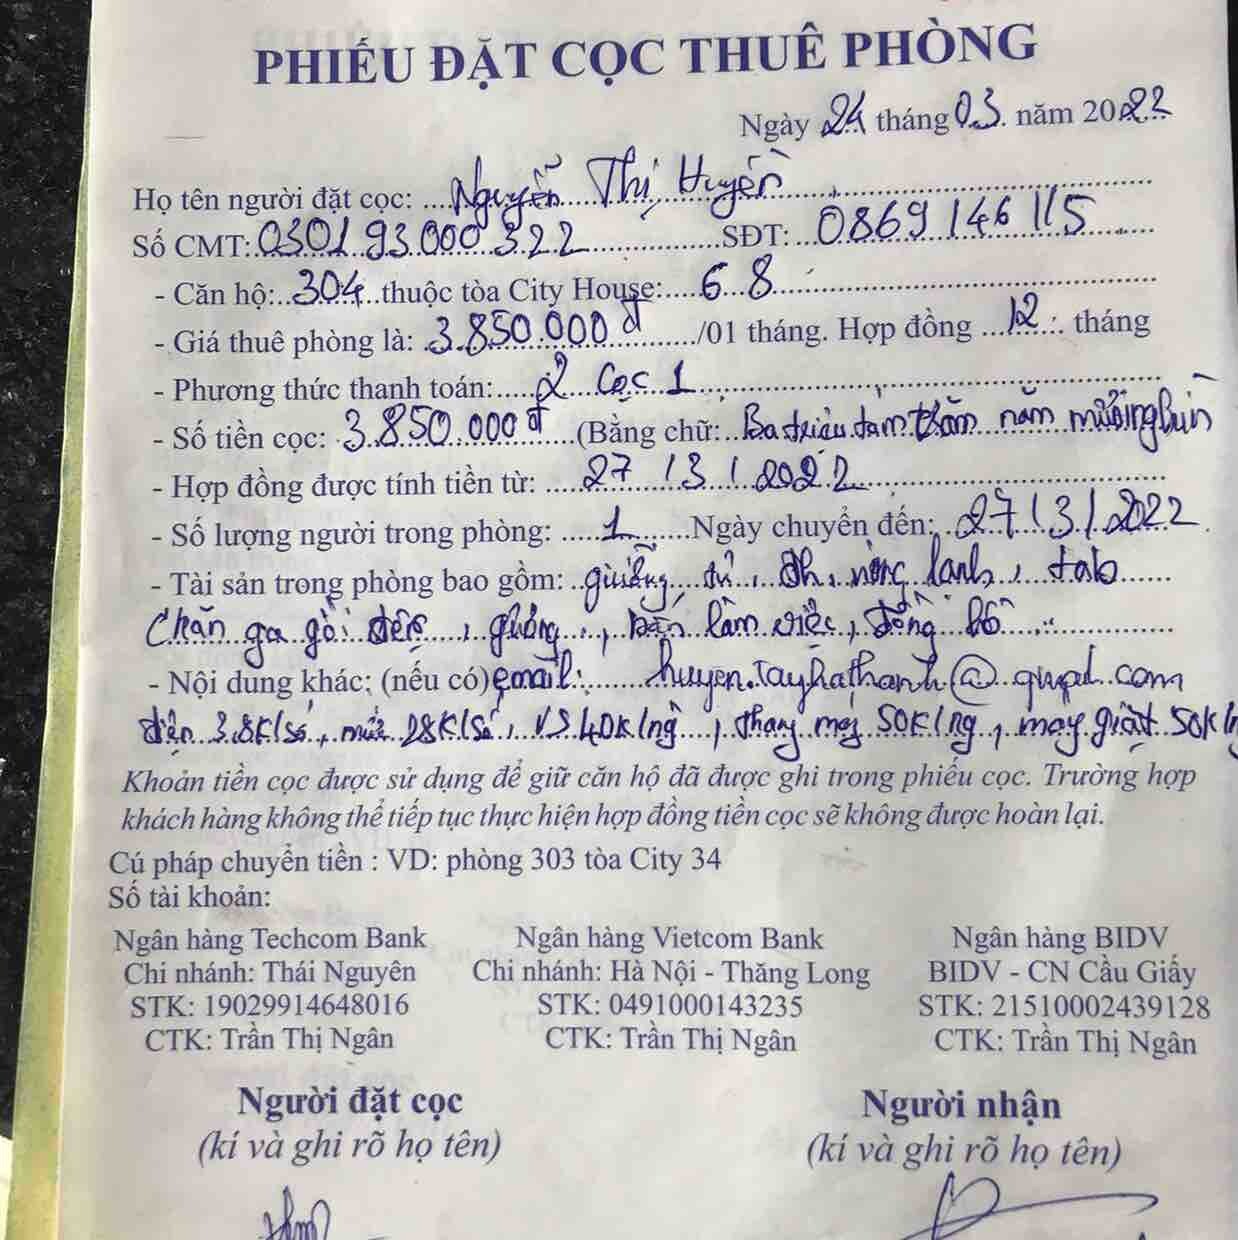 PHIẾU ĐẶT CỌC THUÊ PHÒNG
Ngày 24 tháng 03. năm 2022
Họ tên người đặt cọc: Nguyễn Thị Huyền
Số CMT: 030193000322 SĐT: 0869 146 115
- Căn hộ: 304 thuộc tòa City House: 68
- Giá thuê phòng là: 3.850.000đ /01 tháng. Hợp đồng 12 tháng
- Phương thức thanh toán: 2 cọc 1
- Số tiền cọc: 3.850.000đ (Bằng chữ: Ba triệu tám trăm năm mươi nghìn
- Hợp đồng được tính tiền từ: 27/3/2022
- Số lượng người trong phòng: 1 Ngày chuyển đến: 27/3/2022
- Tài sản trong phòng bao gồm: giường, tủ, đh, nóng lạnh, tab
Chăn ga gối đệm, gương, bàn làm việc, đồng hồ
- Nội dung khác: (nếu có) email: huyen.tayhathanh@gmail.com
điện 3.8K/số, nước 28K/số, VS 40K/ng, thang máy 50K/ng, máy giặt 50K/ng
Khoản tiền cọc được sử dụng để giữ căn hộ đã được ghi trong phiếu cọc. Trường hợp
khách hàng không thể tiếp tục thực hiện hợp đồng tiền cọc sẽ không được hoàn lại.
Cú pháp chuyển tiền : VD: phòng 303 tòa City 34
Số tài khoản:
Ngân hàng Techcom Bank Ngân hàng Vietcom Bank Ngân hàng BIDV
Chi nhánh: Thái Nguyên Chi nhánh: Hà Nội - Thăng Long BIDV - CN Cầu Giấy
STK: 19029914648016 STK: 0491000143235 STK: 21510002439128
CTK: Trần Thị Ngân CTK: Trần Thị Ngân CTK: Trần Thị Ngân
Người đặt cọc Người nhận
(kí và ghi rõ họ tên) (kí và ghi rõ họ tên)